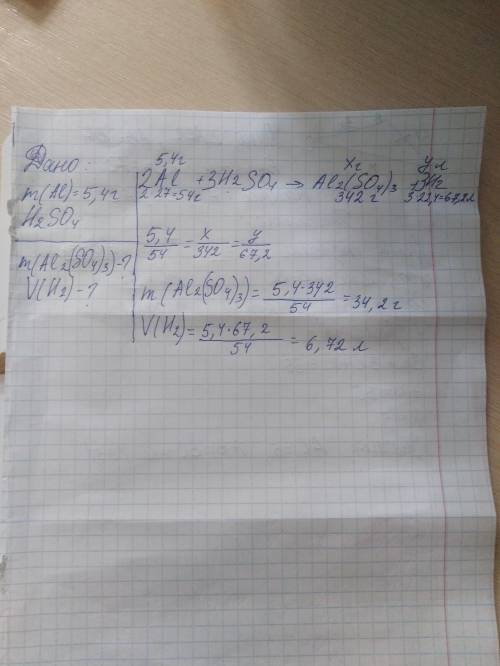 Дано:
m(Al)=5,4г
H2SO4
m(Al2(SO4)3)-?
V(H2)-?
5,4г xг yл
2Al + 3H2SO4 → Al2(SO4)3 + 3H2
2·27=54г 342г 3·22,4=67,2л
5,4/54 = x/342 = y/67,2
m(Al2(SO4)3) = 5,4·342/54 = 34,2г
V(H2) = 5,4·67,2/54 = 6,72 л